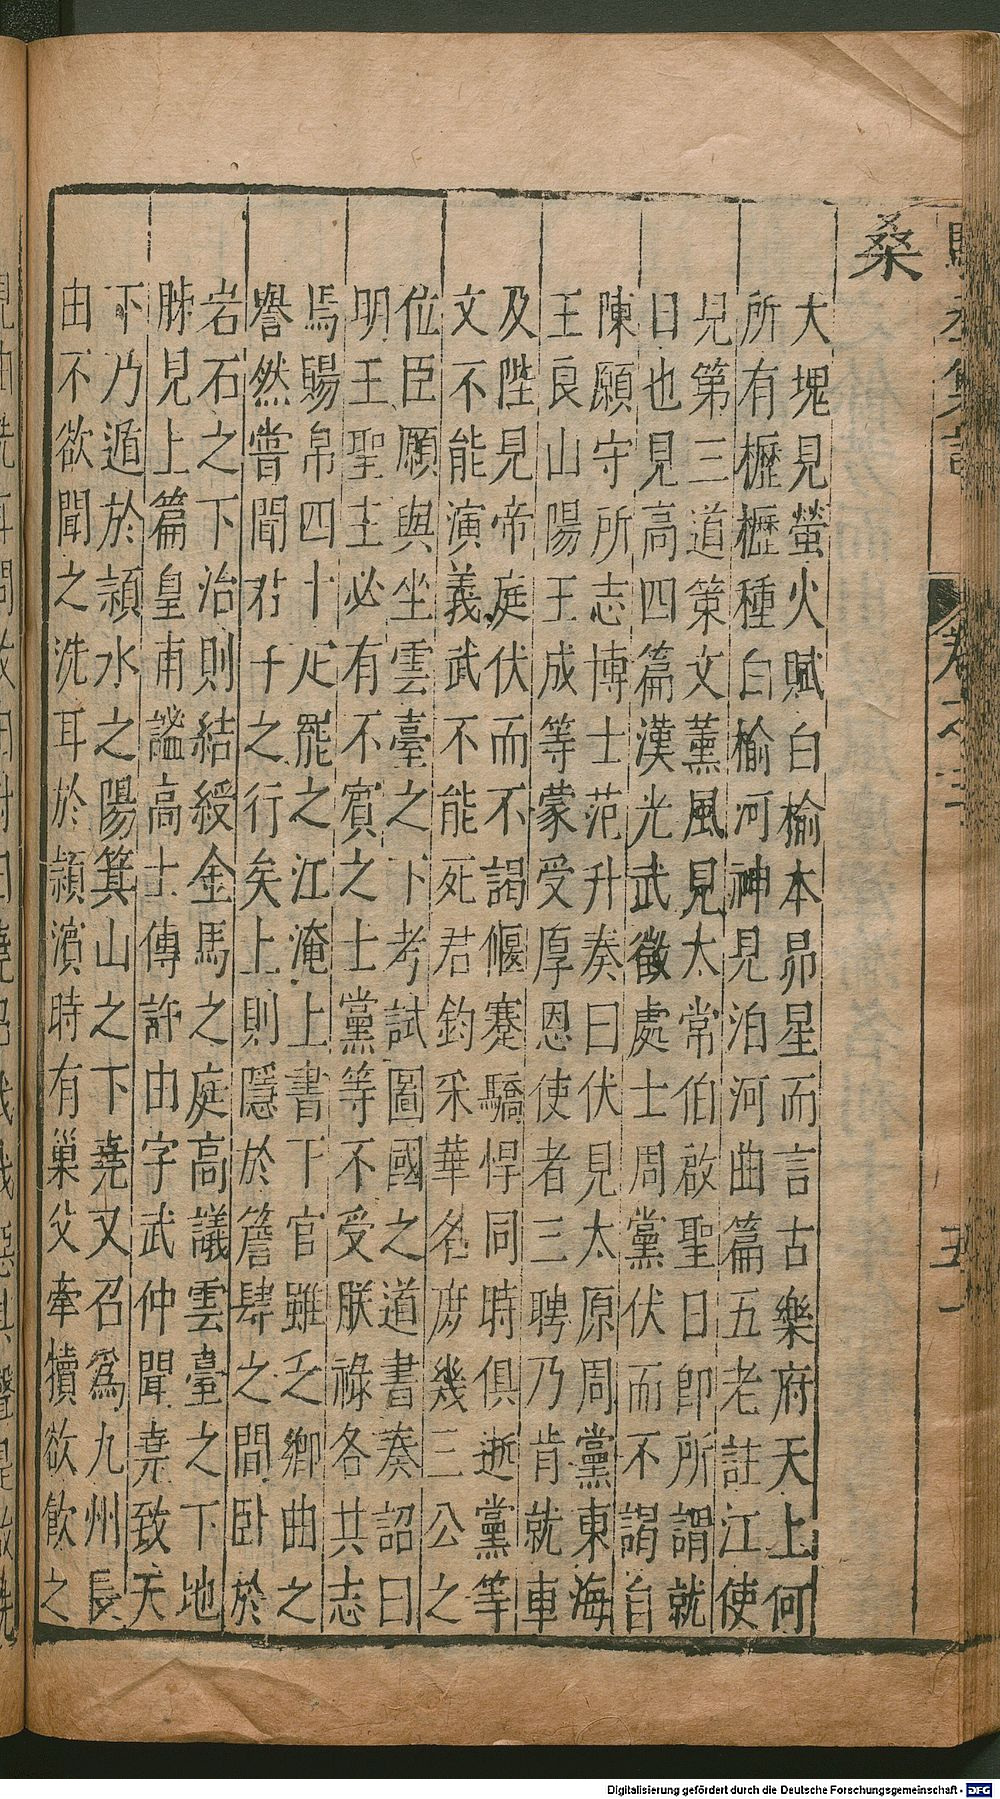 桑
大塊見螢火賦白榆本昴星而言古樂府天上何
所有櫪櫪種白榆河神見泊河曲篇五老註江使
見第三道策文薰風見太常伯啟聖日即所謂就
日也見高四篇漢光武徵處士周黨伏而不謁自
陳願守所志博士范升奏曰伏見太原周黨東海
王良山陽王成等蒙受厚恩使者三聘乃肯就車
及陛見帝庭伏而不謁偃蹇驕悍同時俱逝黨等
文不能演義武不能死君釣采華名庶幾三公之
位臣願與坐雲臺之下考試圖國之道書奏詔曰
明王聖主必有不賓之士黨等不受朕祿各共志
焉賜帛四十疋罷之江淹上書下官雖乏鄉曲之
譽然嘗聞君子之行矣上則隱於簷肆之間卧於
岩石之下治則結綬金馬之庭高議雲臺之下地
脉見上篇皇甫謐高士傳許由字武仲聞堯致天
下乃遁於潁水之陽箕山之下堯又召為九州長
由不欲聞之洗耳於潁濱時有巢父牽犢欲飲之
Digitalisierung gefördert durch die Deutsche Forschungsgemeinschaft - DFG